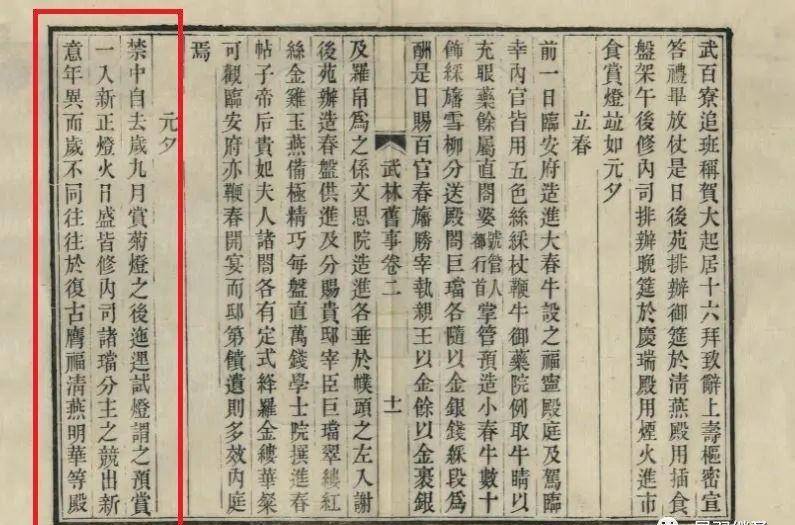 武百寮追班稱賀大起居十六拜致辭上壽樞密宣
答禮畢放仗是日後苑排辦御筵於清燕殿用插食
盤架午後修內司排辦晚筵於慶瑞殿用煙火進市
食賞燈竝如元夕
立春
前一日臨安府造進大春牛設之福寧殿庭及駕臨
幸內官皆用五色絲綵杖鞭牛御藥院例取牛睛以
充眼藥餘屬直閤婆號管人都行首掌管預造小春牛數十
飾綵旛雪柳分送殿閤巨璫各隨以金銀錢綵段爲
酬是日賜百官春旛勝宰執親王以金餘以金裹銀
武林舊事卷二
十一
及羅帛爲之係文思院造進各垂於幞頭之左入謝
後苑辦造春盤供進及分賜貴邸宰臣巨璫翠縷紅
絲金雞玉燕備極精巧每盤直萬錢學士院撰進春
帖子帝后貴妃夫人諸閤各有定式絳羅金縷華粲
可觀臨安府亦鞭春開宴而邸第饋遺則多效內庭
焉
元夕
禁中自去歲九月賞菊燈之後迤邐試燈謂之預賞
一入新正燈火日盛皆修內司諸璫分主之競出新
意年異而歲不同往往於復古膺福清燕明華等殿